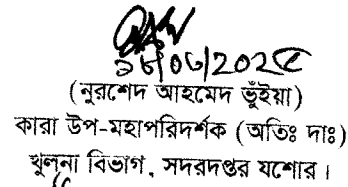 ১৮/০৬/২০২৫
(নুরশেদ আহমেদ ভুঁইয়া)
কারা উপ-মহাপরিদর্শক (অতিঃ দাঃ)
খুলনা বিভাগ, সদরদপ্তর যশোর।